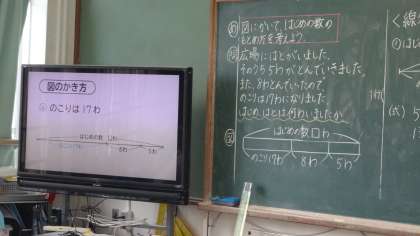 図のかき方
④ のこりは17わ
はじめの数 □わ
のこり17わ
8わ
5わ
め 図にかいて、はじめの数の
もとめ方を考えよう。
問 広場にはとがいました。
そのうち5わがとんでいきました。
また、8わとんでいったので、
のこりは17わになりました。
はじめ、はとは何わいましたか。
図
はじめの数□わ
のこり17わ
8わ
5わ
＜線
①はじ
(式) 5